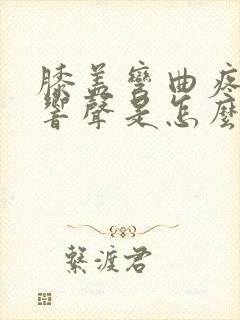 膝盖彎曲疼
響聲是怎麼
繫渡君